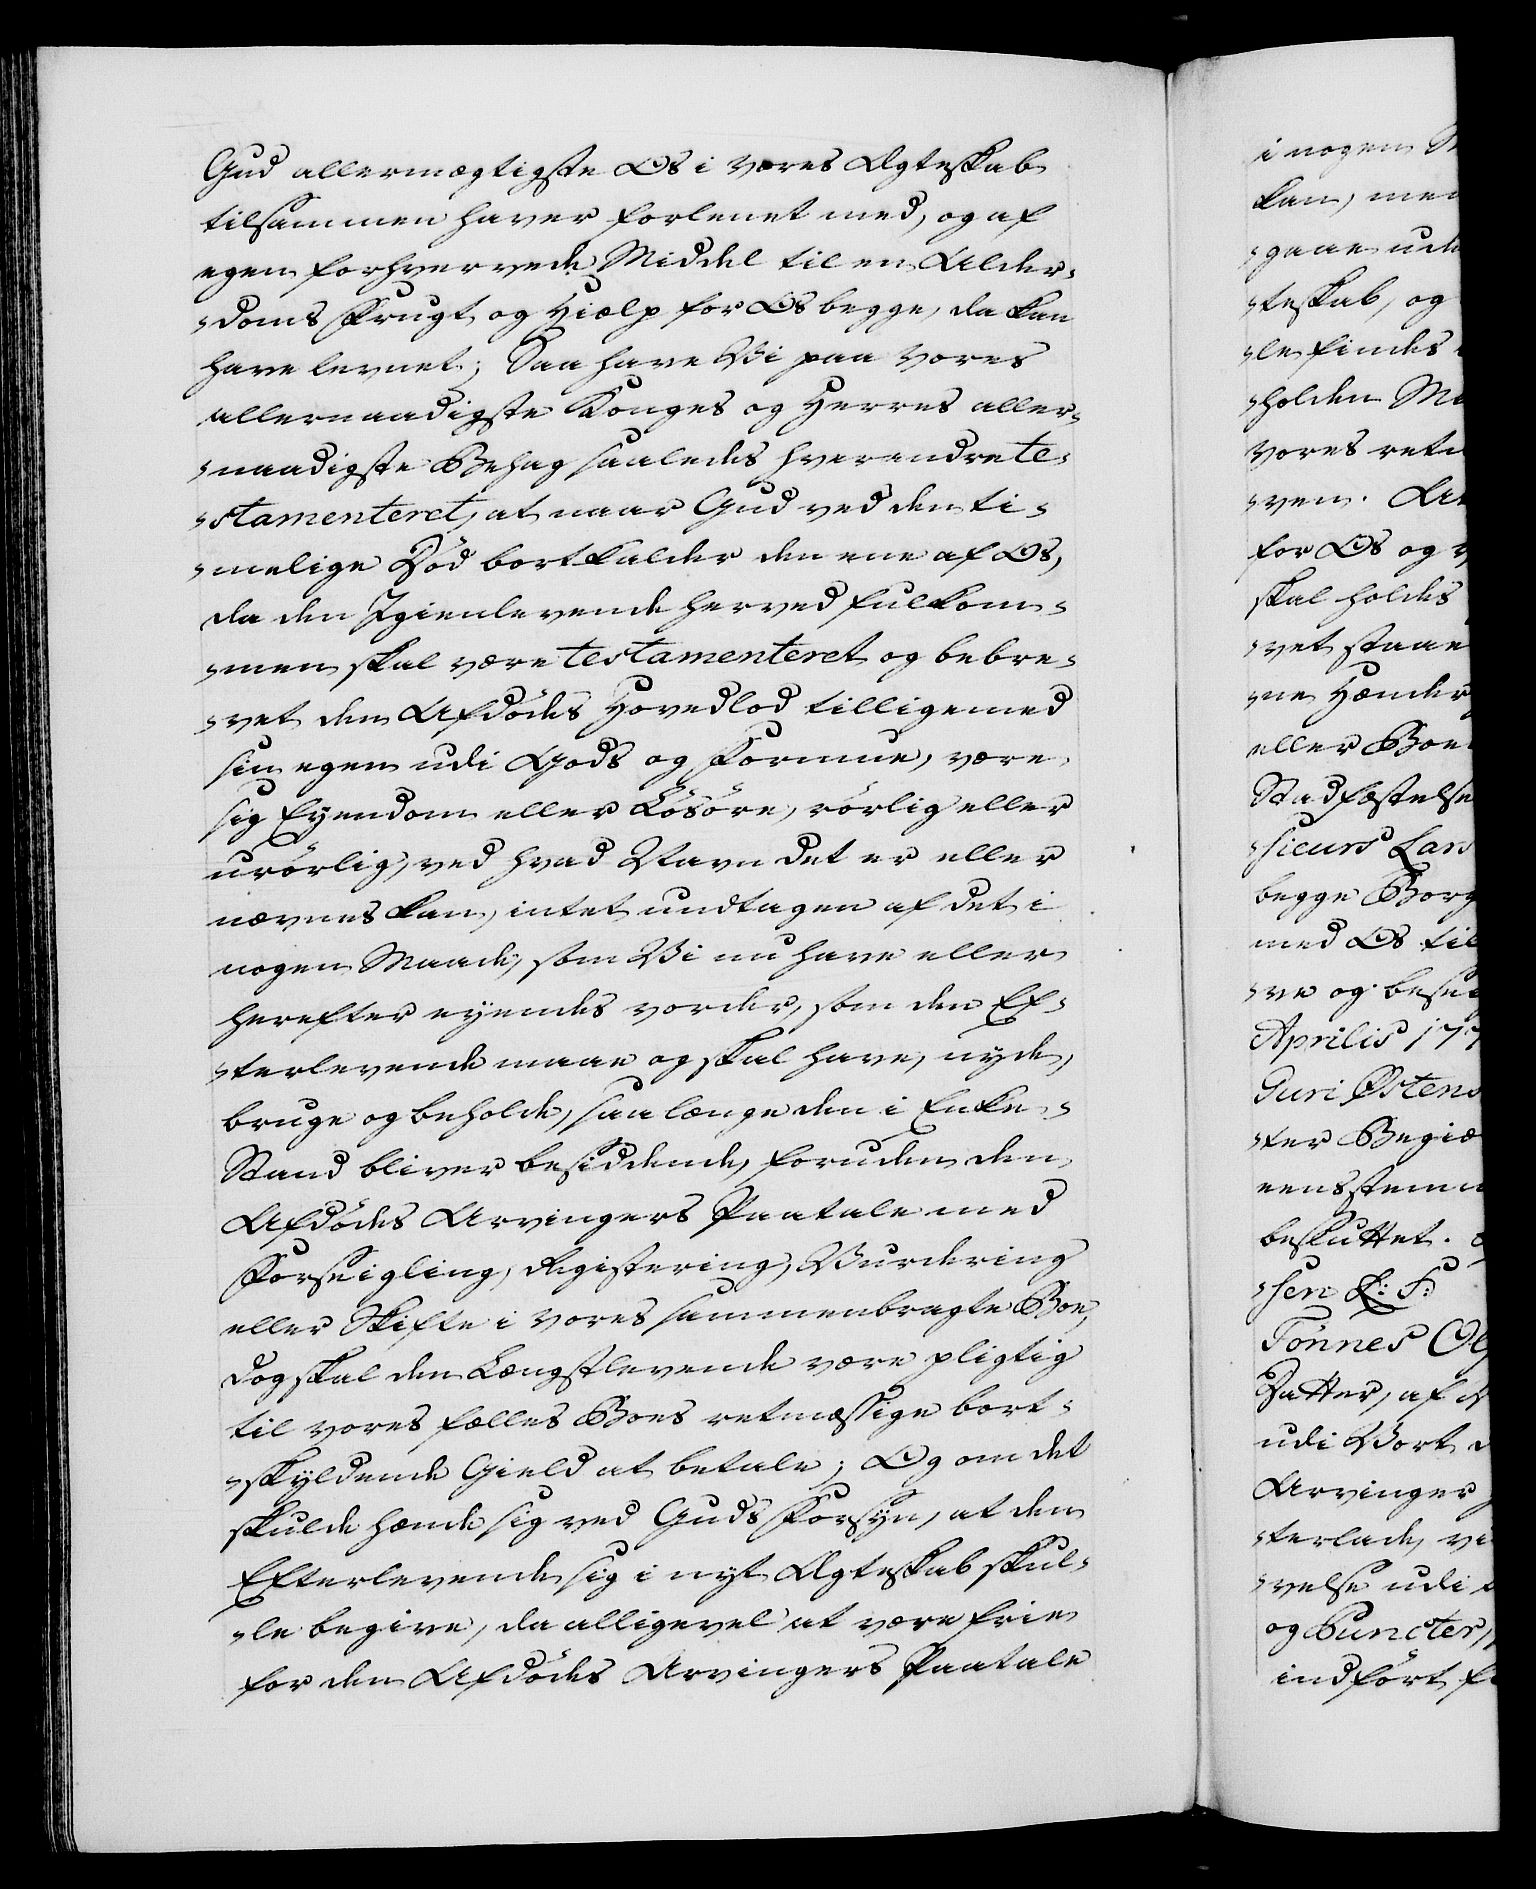 Gud allermægtigste Os i vores Ægteskab
tilsammen haver forlenet med, og af
egen forhvervede Middel til en Alder-
-doms Frugt og Hielp for Os begge, da kan
have levnet; Saa have Vi paa vores
allernaadigste Konges og Herres aller-
-naadigste Behag saaledes hverandre te-
-stamenteret, at naar Gud ved den ti-
-melige Död bortkalder den ene af Os,
da den Igienlevende herved fulkom-
-men skal være testamenteret og bebre-
-vet den Afdödes Hovedlod tilligemed
sin egen udi Gods og Formue, være
sig Eyendom eller Lösöre, rörlig eller
urörlig, ved hvad Navn det er eller
nævnes kan, intet undtagen af det i
nogen Maade, som Vi nu have eller
herefter eyendes vorder, som den Ef-
-terlevende maae og skal have, nyde,
bruge og beholde, saa længe den i Enke-
Stand bliver besiddende, foruden den
Afdödes Arvingers Paatale med
Forseigling, Registering, Vurdering
eller Skifte i vores sammenbragte Boe,
dog skal den Længstlevende være pligtig
til vores fælles Boes retmæssige bort-
-skyldende Gield at betale; Og om det
skulde hænde sig ved Guds Forsyn, at den
Efterlevende sig i nyt Ægteskab skul-
-le begive, da alligevel at være frie
for den Afdödes Arvingers Paatale
i nogen
kan, men
-gaae
-teskab, og
-le findes
-holden
vores
-ven.
for Os og
skal holdes
-vet staae
-ne Hænder
eller Boe
Stadfæstelse
-sieurs Lars
begge
med Os til
-ve og
Aprilis 177
Guri Östens
-ter
eensstem
besluttet.
-sen L: S:
Tönnes
Datter, af
udi Vort
Arvinger
-terlade,
-velse udi
og Puncter,
indfört